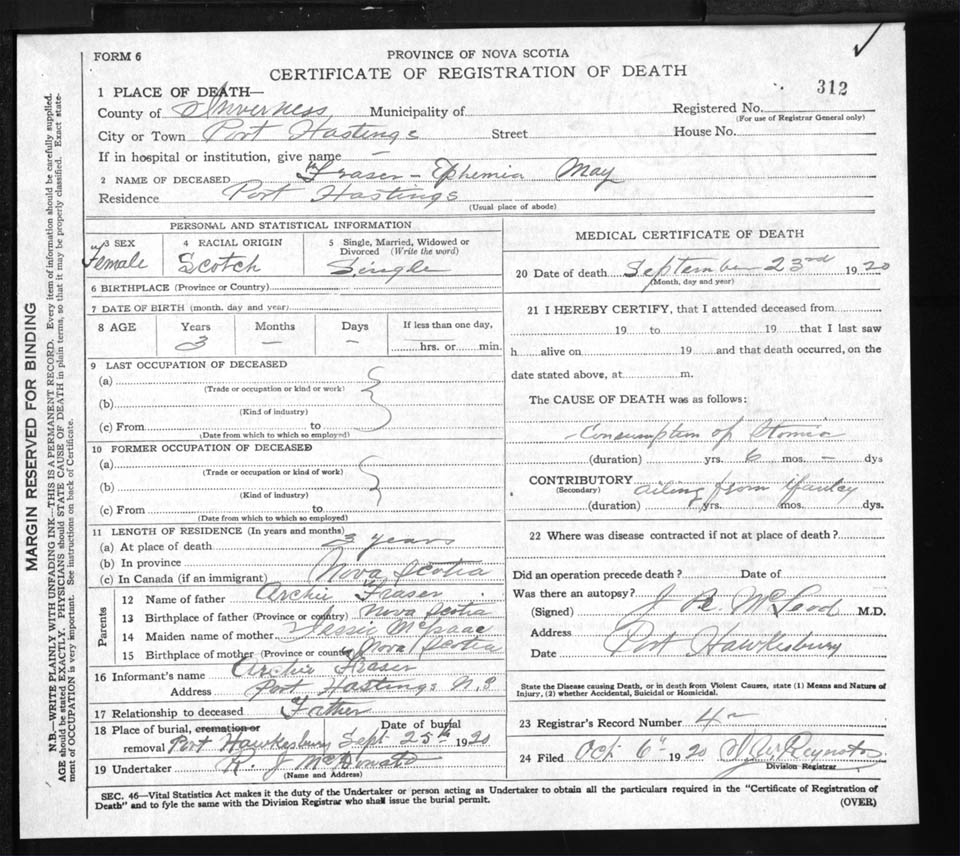 FORM 6
PROVINCE OF NOVA SCOTIA
CERTIFICATE OF REGISTRATION OF DEATH
312
1 PLACE OF DEATH—
County of Inverness Municipality of Registered No.
(For use of Registrar General only)
City or Town Port Hastings Street House No.
If in hospital or institution, give name —
2 NAME OF DECEASED Fraser - Ephemia May
Residence Port Hastings
(Usual place of abode)
PERSONAL AND STATISTICAL INFORMATION
3 SEX 4 RACIAL ORIGIN 5 Single, Married, Widowed or Divorced (Write the word)
Female Scotch Single
6 BIRTHPLACE (Province or Country)
7 DATE OF BIRTH (month, day and year)
8 AGE Years Months Days If less than one day,
3 — — hrs. or min.
9 LAST OCCUPATION OF DECEASED
(a)
(Trade or occupation or kind or work)
(b)
(Kind of industry)
(c) From to
(Date from which to which so employed)
10 FORMER OCCUPATION OF DECEASED
(a)
(Trade or occupation or kind of work)
(b)
(Kind of industry)
(c) From to
(Date from which to which so employed)
11 LENGTH OF RESIDENCE (In years and months)
(a) At place of death 3 years
(b) In province
(c) In Canada (if an immigrant) Nova Scotia
Parents
12 Name of father Archie Fraser
13 Birthplace of father (Province or country) Nova Scotia
14 Maiden name of mother Jessie McIsaac
15 Birthplace of mother (Province or country) Nova Scotia
16 Informant's name Archie Fraser
Address Port Hastings N.S
17 Relationship to deceased Father
18 Place of burial, cremation or Date of burial
removal Port Hawkesbury Sept 25th 1920
19 Undertaker R. J McDonald
(Name and Address)
MEDICAL CERTIFICATE OF DEATH
20 Date of death September 23rd 1920
(Month, day and year)
21 I HEREBY CERTIFY, that I attended deceased from
19 to 19 that I last saw
h alive on 19 and that death occurred, on the
date stated above, at m.
The CAUSE OF DEATH was as follows:
Consumption of
(duration) yrs. 6 mos. — dys
CONTRIBUTORY ailing from
(Secondary)
(duration) yrs. mos. dys.
22 Where was disease contracted if not at place of death?
Did an operation precede death? Date of
Was there an autopsy?
(Signed) McLeod M.D.
Address Port Hawkesbury
Date
State the Disease causing Death, or in death from Violent Causes, state (1) Means and Nature of
Injury, (2) whether Accidental, Suicidal or Homicidal.
23 Registrar's Record Number 4
24 Filed Oct 6 1920 Reynolds
Division Registrar
SEC. 46—Vital Statistics Act makes it the duty of the Undertaker or person acting as Undertaker to obtain all the particulars required in the "Certificate of Registration of
Death" and to fyle the same with the Division Registrar who shall issue the burial permit.
(OVER)
MARGIN RESERVED FOR BINDING
N.B.—WRITE PLAINLY WITH UNFADING INK—THIS IS A PERMANENT RECORD. Every item of information should be carefully supplied.
AGE should be stated EXACTLY. PHYSICIANS should STATE CAUSE OF DEATH in plain terms, so that it may be properly classified. Exact state-
ment of OCCUPATION is very important. See instructions on back of Certificate.